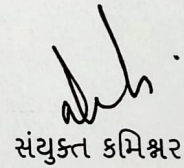 સંયુક્ત કમિશ્નર